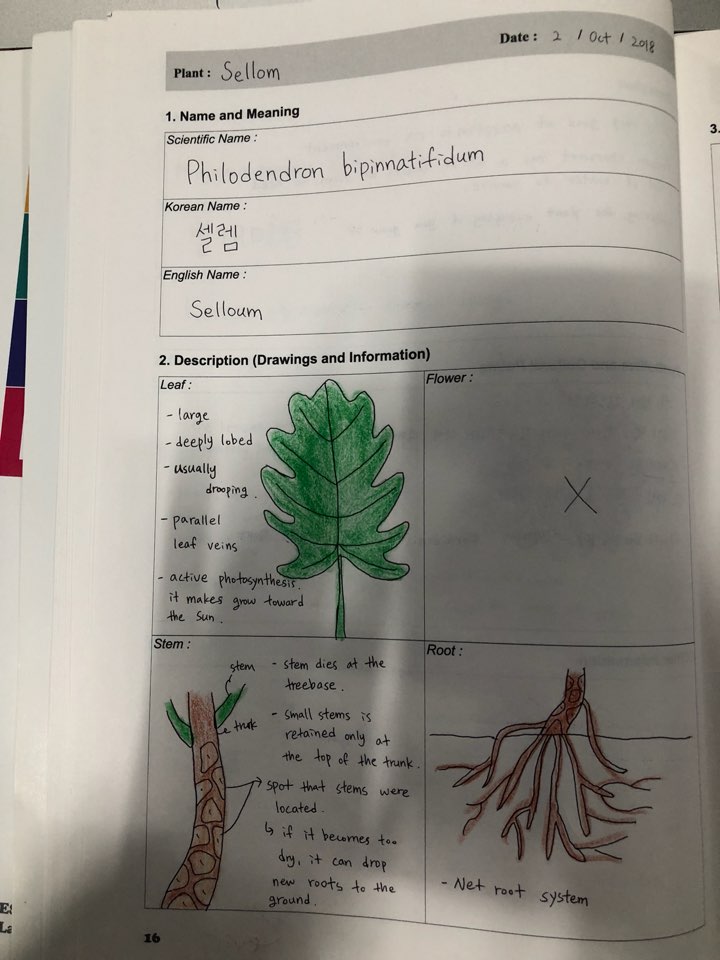 Date : 2 / Oct / 2018
Plant : Sellom
1. Name and Meaning
Scientific Name :
Philodendron bipinnatifidum
Korean Name :
셀렘
English Name :
Selloum
2. Description (Drawings and Information)
Leaf :
- large
- deeply lobed
- usually
drooping.
- parallel
leaf veins
- active photosynthesis.
it makes grow toward
the sun.
Flower :
X
Stem :
stem
trunk
- stem dies at the
treebase.
- small stems is
retained only at
the top of the trunk.
spot that stems were
located.
↳ if it becomes too
dry, it can drop
new roots to the
ground.
Root :
- Net root system
16
3.